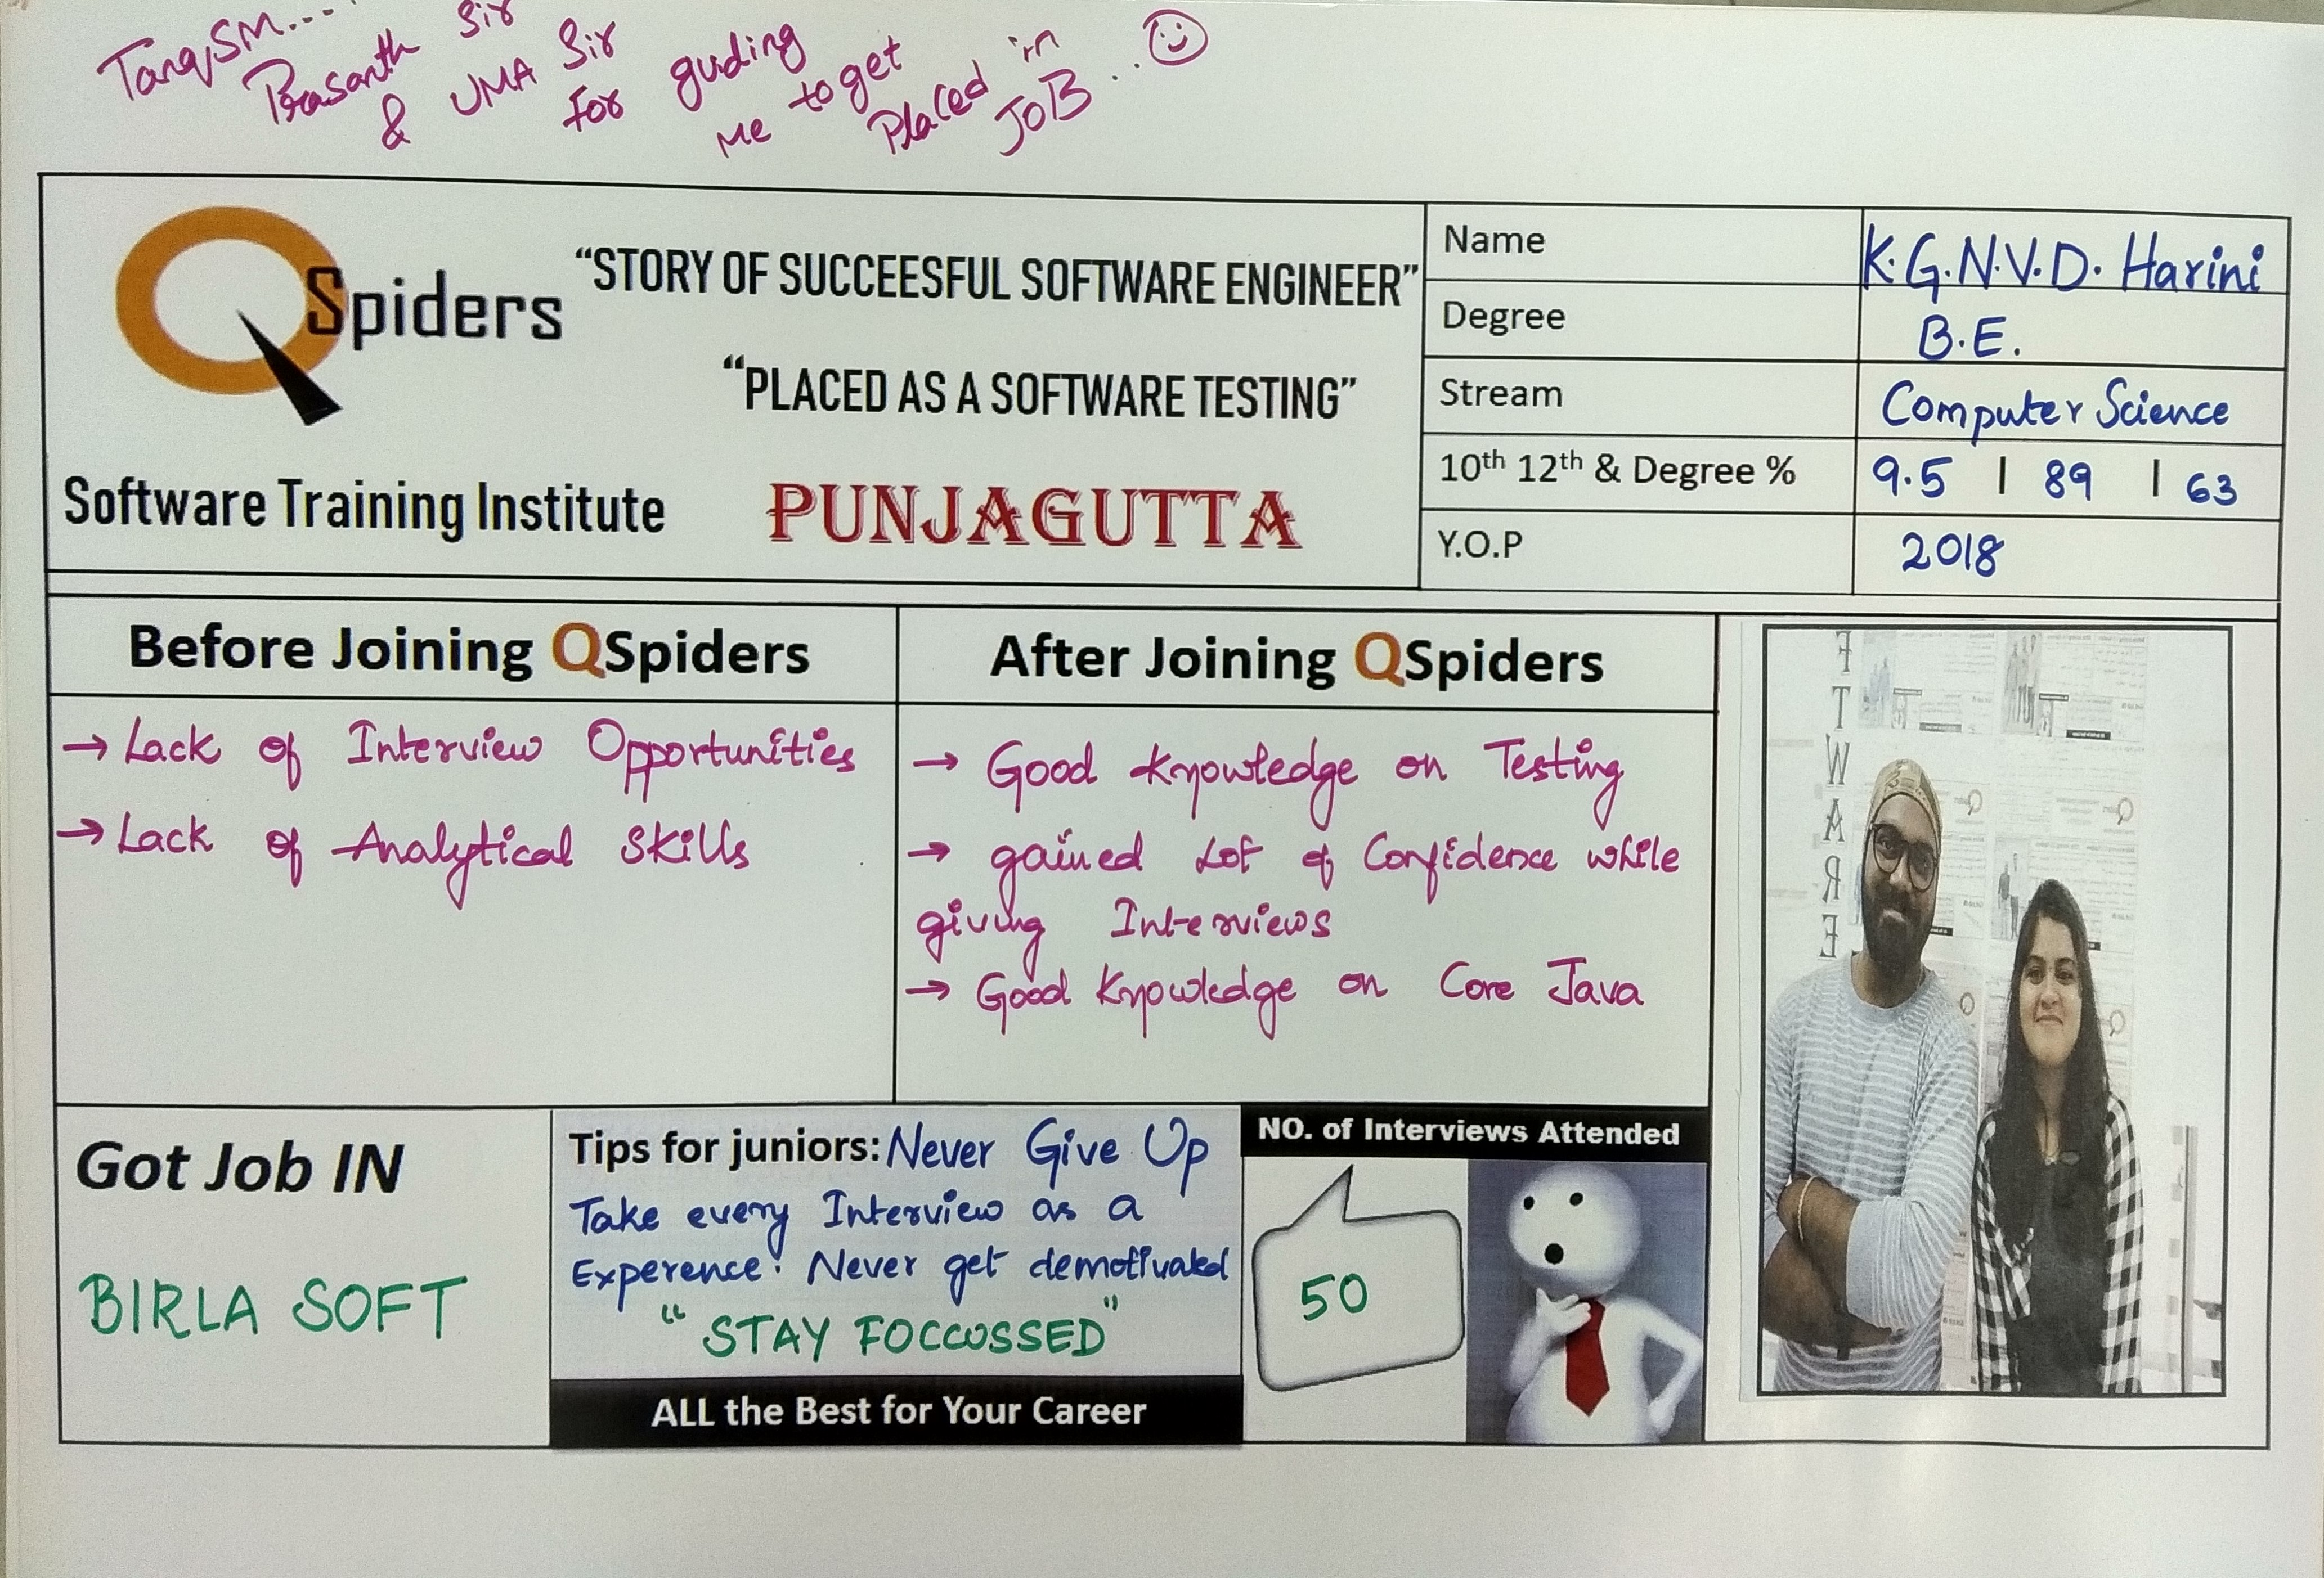 TanqSM....
Prasanth Sir
& UMA Sir
For guding
me to get
Placed in
JOB...
QSpiders
"STORY OF SUCCEESFUL SOFTWARE ENGINEER"
"PLACED AS A SOFTWARE TESTING"
Software Training Institute
PUNJAGUTTA
Name K.G.N.V.D. Harini
Degree B.E.
Stream Computer Science
10th 12th & Degree % 9.5 | 89 | 63
Y.O.P 2018
Before Joining QSpiders
→ Lack of Interview Opportunities
→ Lack of Analytical Skills
After Joining QSpiders
→ Good knowledge on Testing
→ gained Lot of Confidence while
giving Interviews
→ Good Knowledge on Core Java
FTWARE
Got Job IN
BIRLA SOFT
Tips for juniors: Never Give Up
Take every Interview as a
Experence! Never get demotivated
"STAY FOCCUSSED"
ALL the Best for Your Career
NO. of Interviews Attended
50